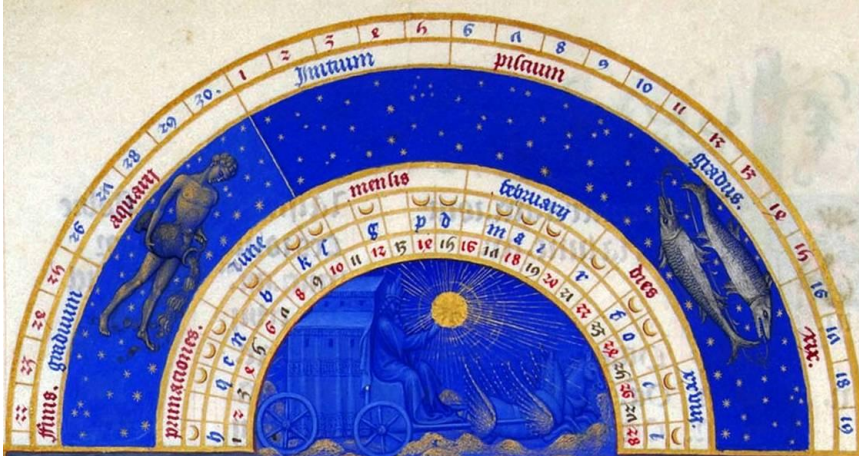 22 23 24 25 26 27 28 29 30. 1 2 3 4 5 6 7 8 9 10 11 12 13 14 15 16 17 18 19
ffinis. graduum aquarij Initium piscium gradus. xix.
primaciones. lune mensis february dies xxviii.
h q c n b k g p d m a i r f o l
1 2 3 4 5 6 7 8 9 10 11 12 13 14 15 16 17 18 19 20 21 22 23 24 25 26 27 28